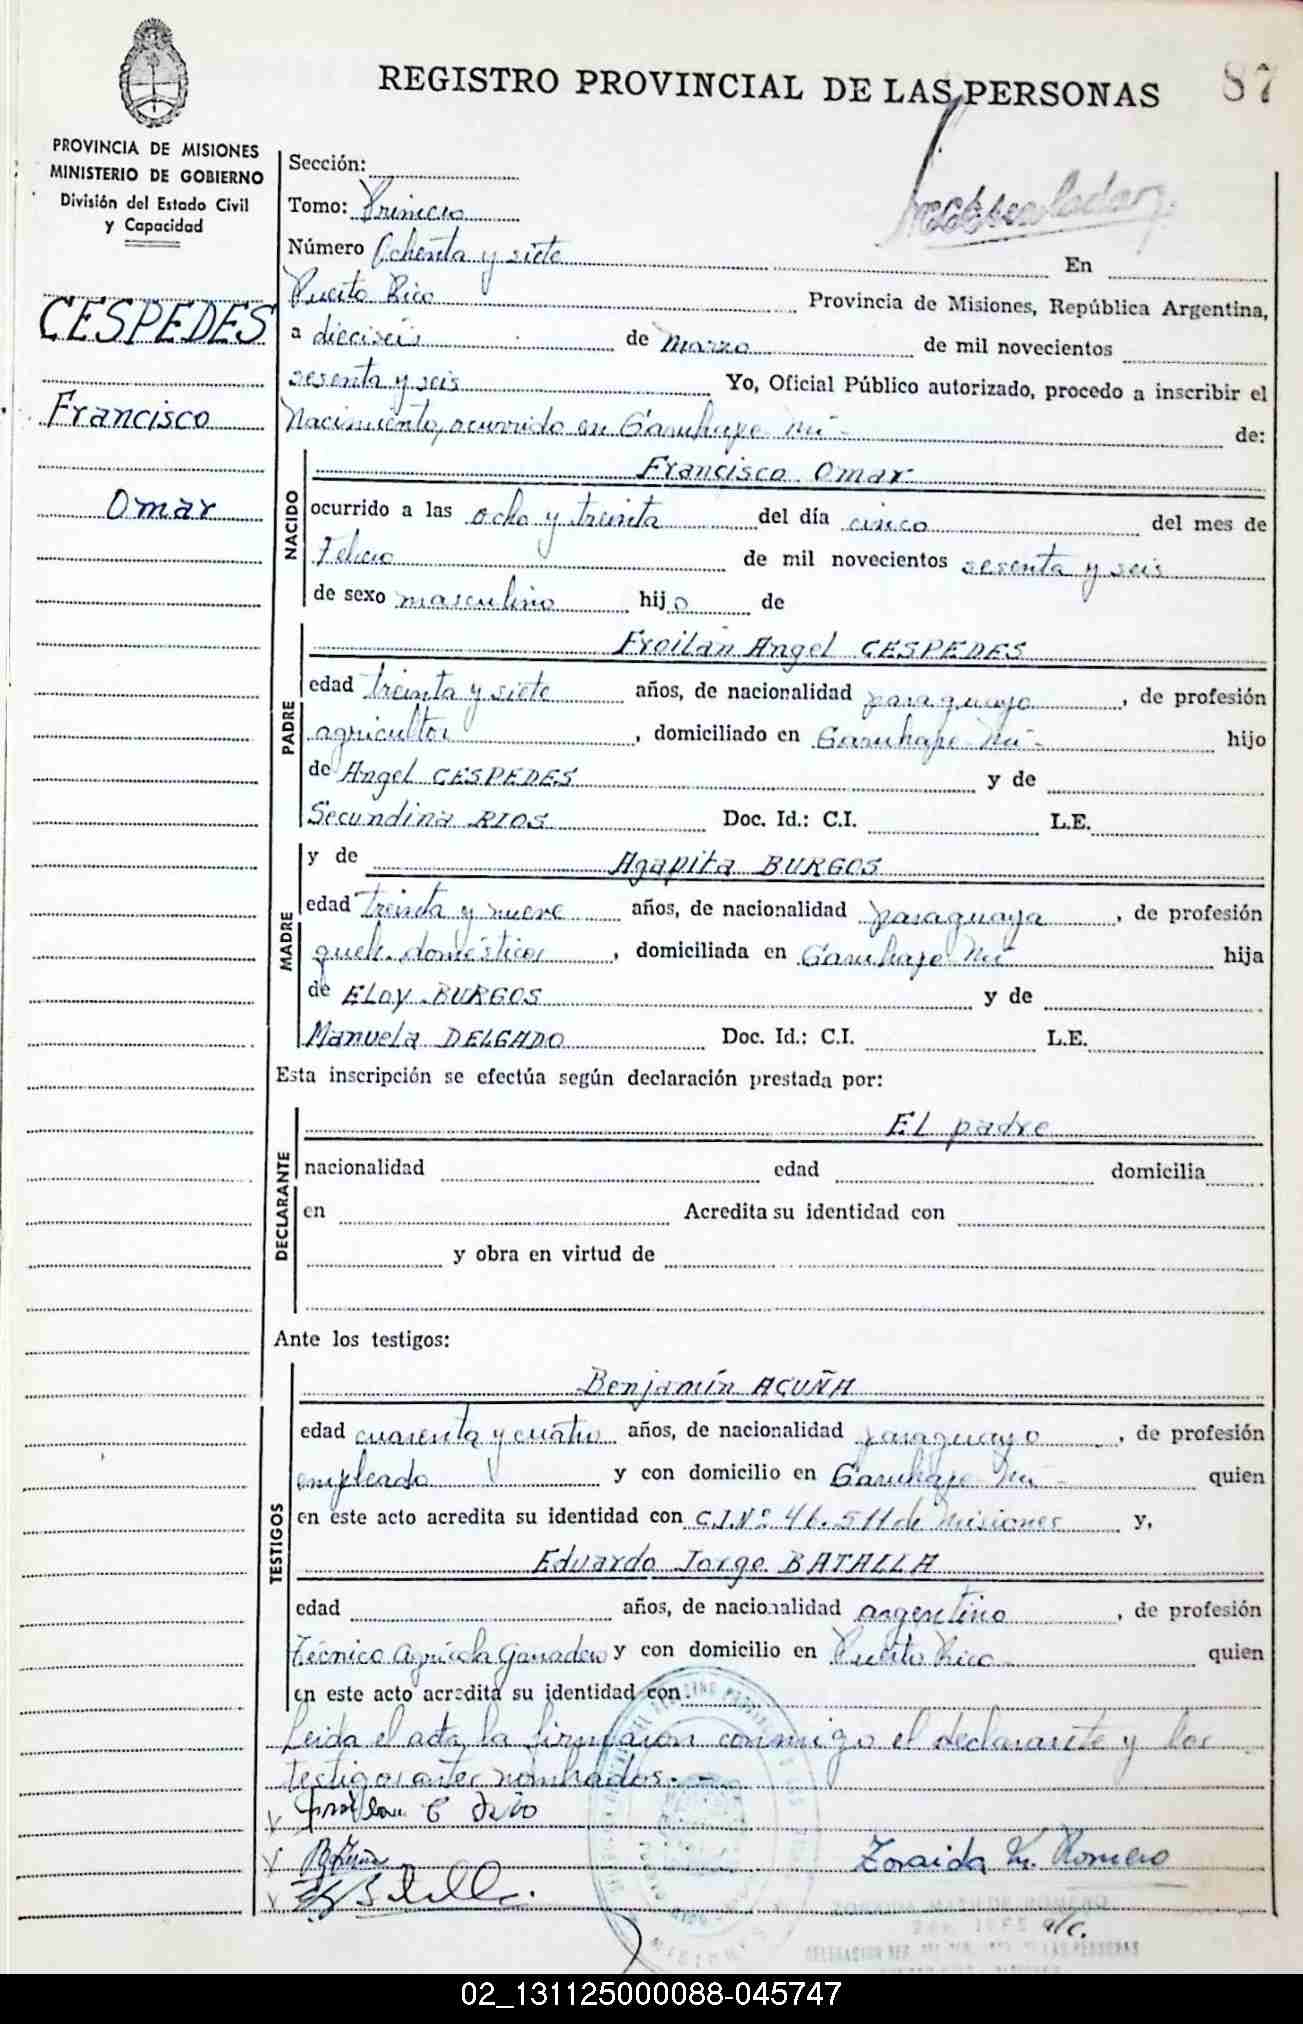 REGISTRO PROVINCIAL DE LAS PERSONAS
87
PROVINCIA DE MISIONES
MINISTERIO DE GOBIERNO
División del Estado Civil
y Capacidad
CESPEDES
Francisco
Omar
Sección:
Tomo: Primero
Número Ochenta y siete En
Puerto Rico Provincia de Misiones, República Argentina,
a dieciseis de Marzo de mil novecientos
sesenta y seis Yo, Oficial Público autorizado, procedo a inscribir el
Nacimiento, ocurrido en Garuhape Mi - de:
NACIDO
Francisco Omar
ocurrido a las ocho y treinta del día cinco del mes de
Febrero de mil novecientos sesenta y seis
de sexo masculino hijo de
PADRE
Froilán Angel CESPEDES
edad treinta y siete años, de nacionalidad paraguayo, de profesión
agricultor, domiciliado en Garuhape Mi - hijo
de Angel CESPEDES y de
Secundina RIOS Doc. Id.: C.I. L.E.
MADRE
y de Agapita BURGOS
edad treinta y nueve años, de nacionalidad paraguaya, de profesión
queh. domésticos, domiciliada en Garuhape Mi hija
de ELOY BURGOS y de
Manuela DELGADO Doc. Id.: C.I. L.E.
Esta inscripción se efectúa según declaración prestada por:
DECLARANTE
El padre
nacionalidad edad domicilia
en Acredita su identidad con
y obra en virtud de
Ante los testigos:
TESTIGOS
Benjamín ACUÑA
edad cuarenta y cuatro años, de nacionalidad paraguayo, de profesión
empleado y con domicilio en Garuhape Mi - quien
en este acto acredita su identidad con C.I.Nº 46.511 de Misiones y,
Eduardo Jorge BATALLA
edad años, de nacionalidad argentino, de profesión
Técnico Agrícola Ganadero y con domicilio en Puerto Rico quien
en este acto acredita su identidad con
Leida el acta la firmaron conmigo el declarante y los
testigos antes nombrados.-
Zoraida M. Romero
a/c.
02_131125000088-045747